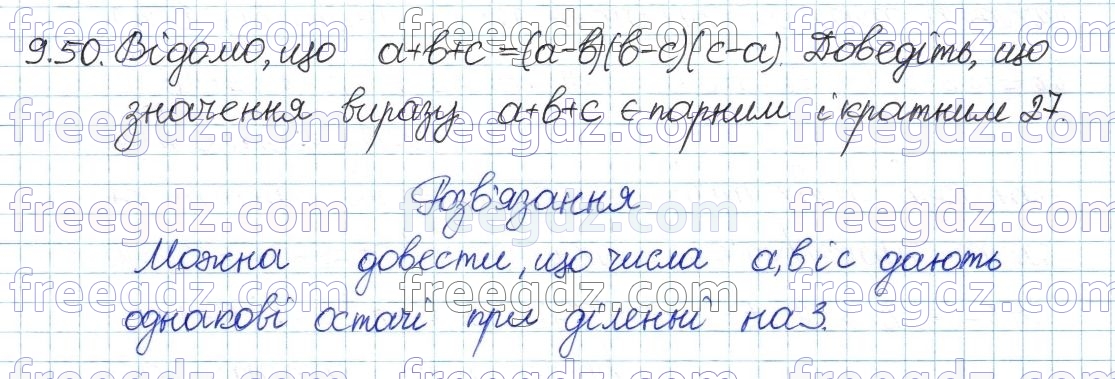 9.50. Відомо, що a+b+c=(a-b)(b-c)(c-a). Доведіть, що
значення виразу a+b+c є парним і кратним 27.
Розв'язання
Можна довести, що числа a, b і c дають
однакові остачі при діленні на 3.
freegdz.com